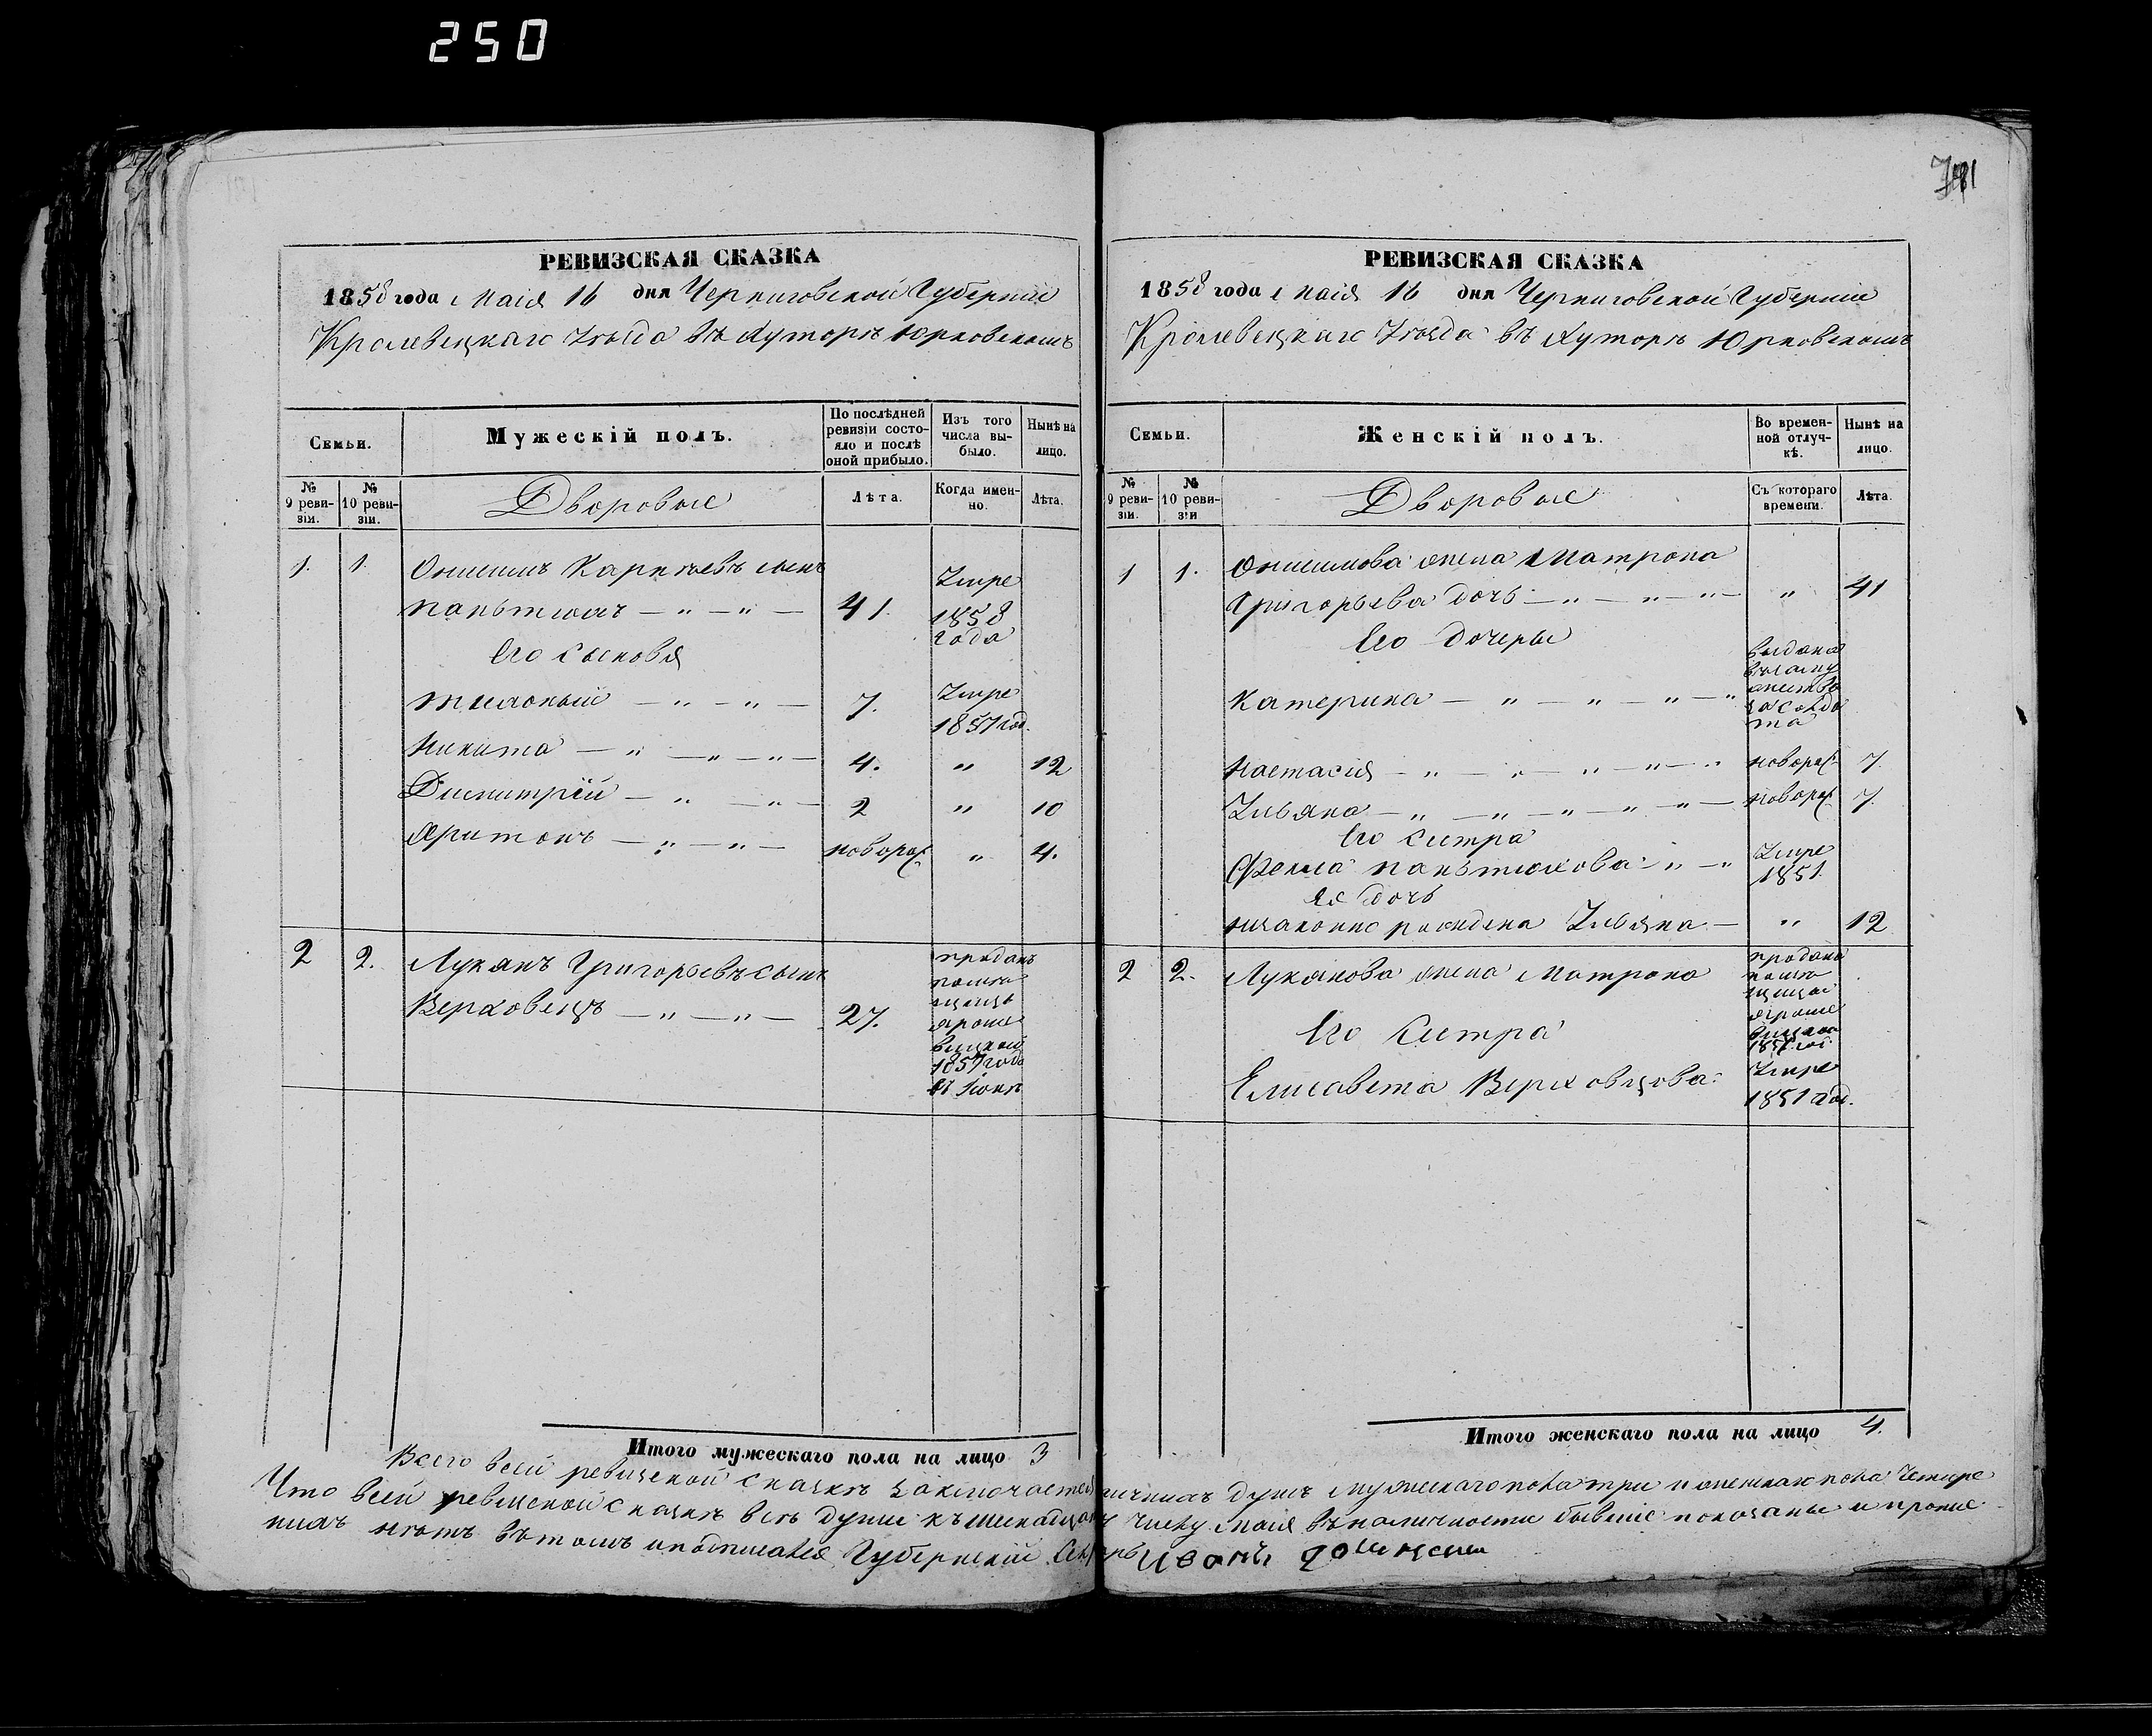 250
781
РЕВИЗСКАЯ СКАЗКА
1858 года Маія 16 дня Черниговской Губерніи
Кролевецкаго Уѣзда въ Хуторѣ Юрковскомъ
Семьи.
Мужескій полъ.
По послѣдней ревизіи состояло и послѣ оной прибыло.
Изъ того числа выбыло.
Нынѣ на лицо.
№ 9 ревизіи.
№ 10 ревизіи.
Дворовые
Лѣта.
Когда именно.
Лѣта.
1. 1. Онисимъ Карпѣевъ сынъ
Папьтюхъ — „ — „ — 41. Умре 1858 года
Его сыновья
Тихоный — „ — „ — 7. Умре 1857 год.
Никита — „ — „ — „ — 4. „ 12
Димитрій — „ — „ — 2 „ 10
Харитонъ — „ — „ — новорож „ 4.
2 2. Лукянъ Григорьевъ сынъ
Верховецъ — „ — „ — 27. проданъ помѣщицѣ 1857 года
Итого мужескаго пола на лицо 3
РЕВИЗСКАЯ СКАЗКА
1858 года Маія 16 дня Черниговской Губерніи
Кролевецкаго Уѣзда въ Хуторѣ Юрковскомъ
Семьи.
Женскій полъ.
Во временной отлучкѣ.
Нынѣ на лицо.
№ 9 ревизіи.
№ 10 ревизіи
Дворовые
Съ котораго времени.
Лѣта.
1 1. Онисимова жена Матрона
Григорьева дочь — „ — „ — „ — „ 41
Его дочеры
Катерина — „ — „ — „ — „ выдана въ замужество за солдата
Настасія — „ — „ — „ — „ — „ новорож 7.
Ульяна — „ — „ — „ — „ — „ — новорож 7.
Его систра
Фекла Папьтюхова — „ — „ Умре 1851.
Ея дочь
незаконно рождена Ульяна — „ 12
2 2. Лукянова жена Матрона продана помѣщицѣ
Его систра
Елисавета Верховцова Умре 1851 год.
Итого женскаго пола на лицо 4.
Всего всей ревизской сказкѣ заключается наличныхъ душъ мужескаго пола три и женскаго пола четире
Что всей ревизской сказкѣ всѣ души къ шеснадцатому числу Маія въ наличности бывшіе показаны и
нихъ нѣтъ въ томъ и подписался Губернскій Иванъ